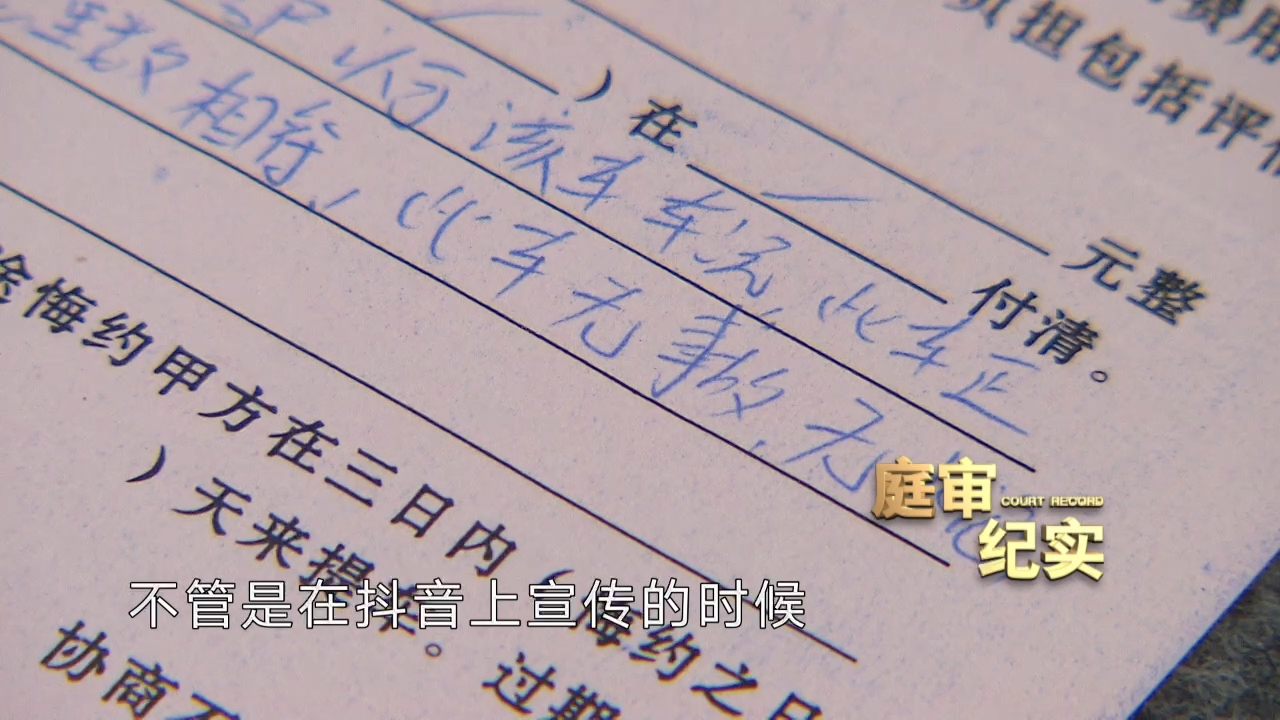 费用
负担包括评估
元整
）在
付清。
以后该车车况此车正
里数相符，此车无事故，无
途悔约甲方在三日内（悔约之日
）天来提车。过期
协商不
庭审
COURT RECORD
纪实
不管是在抖音上宣传的时候